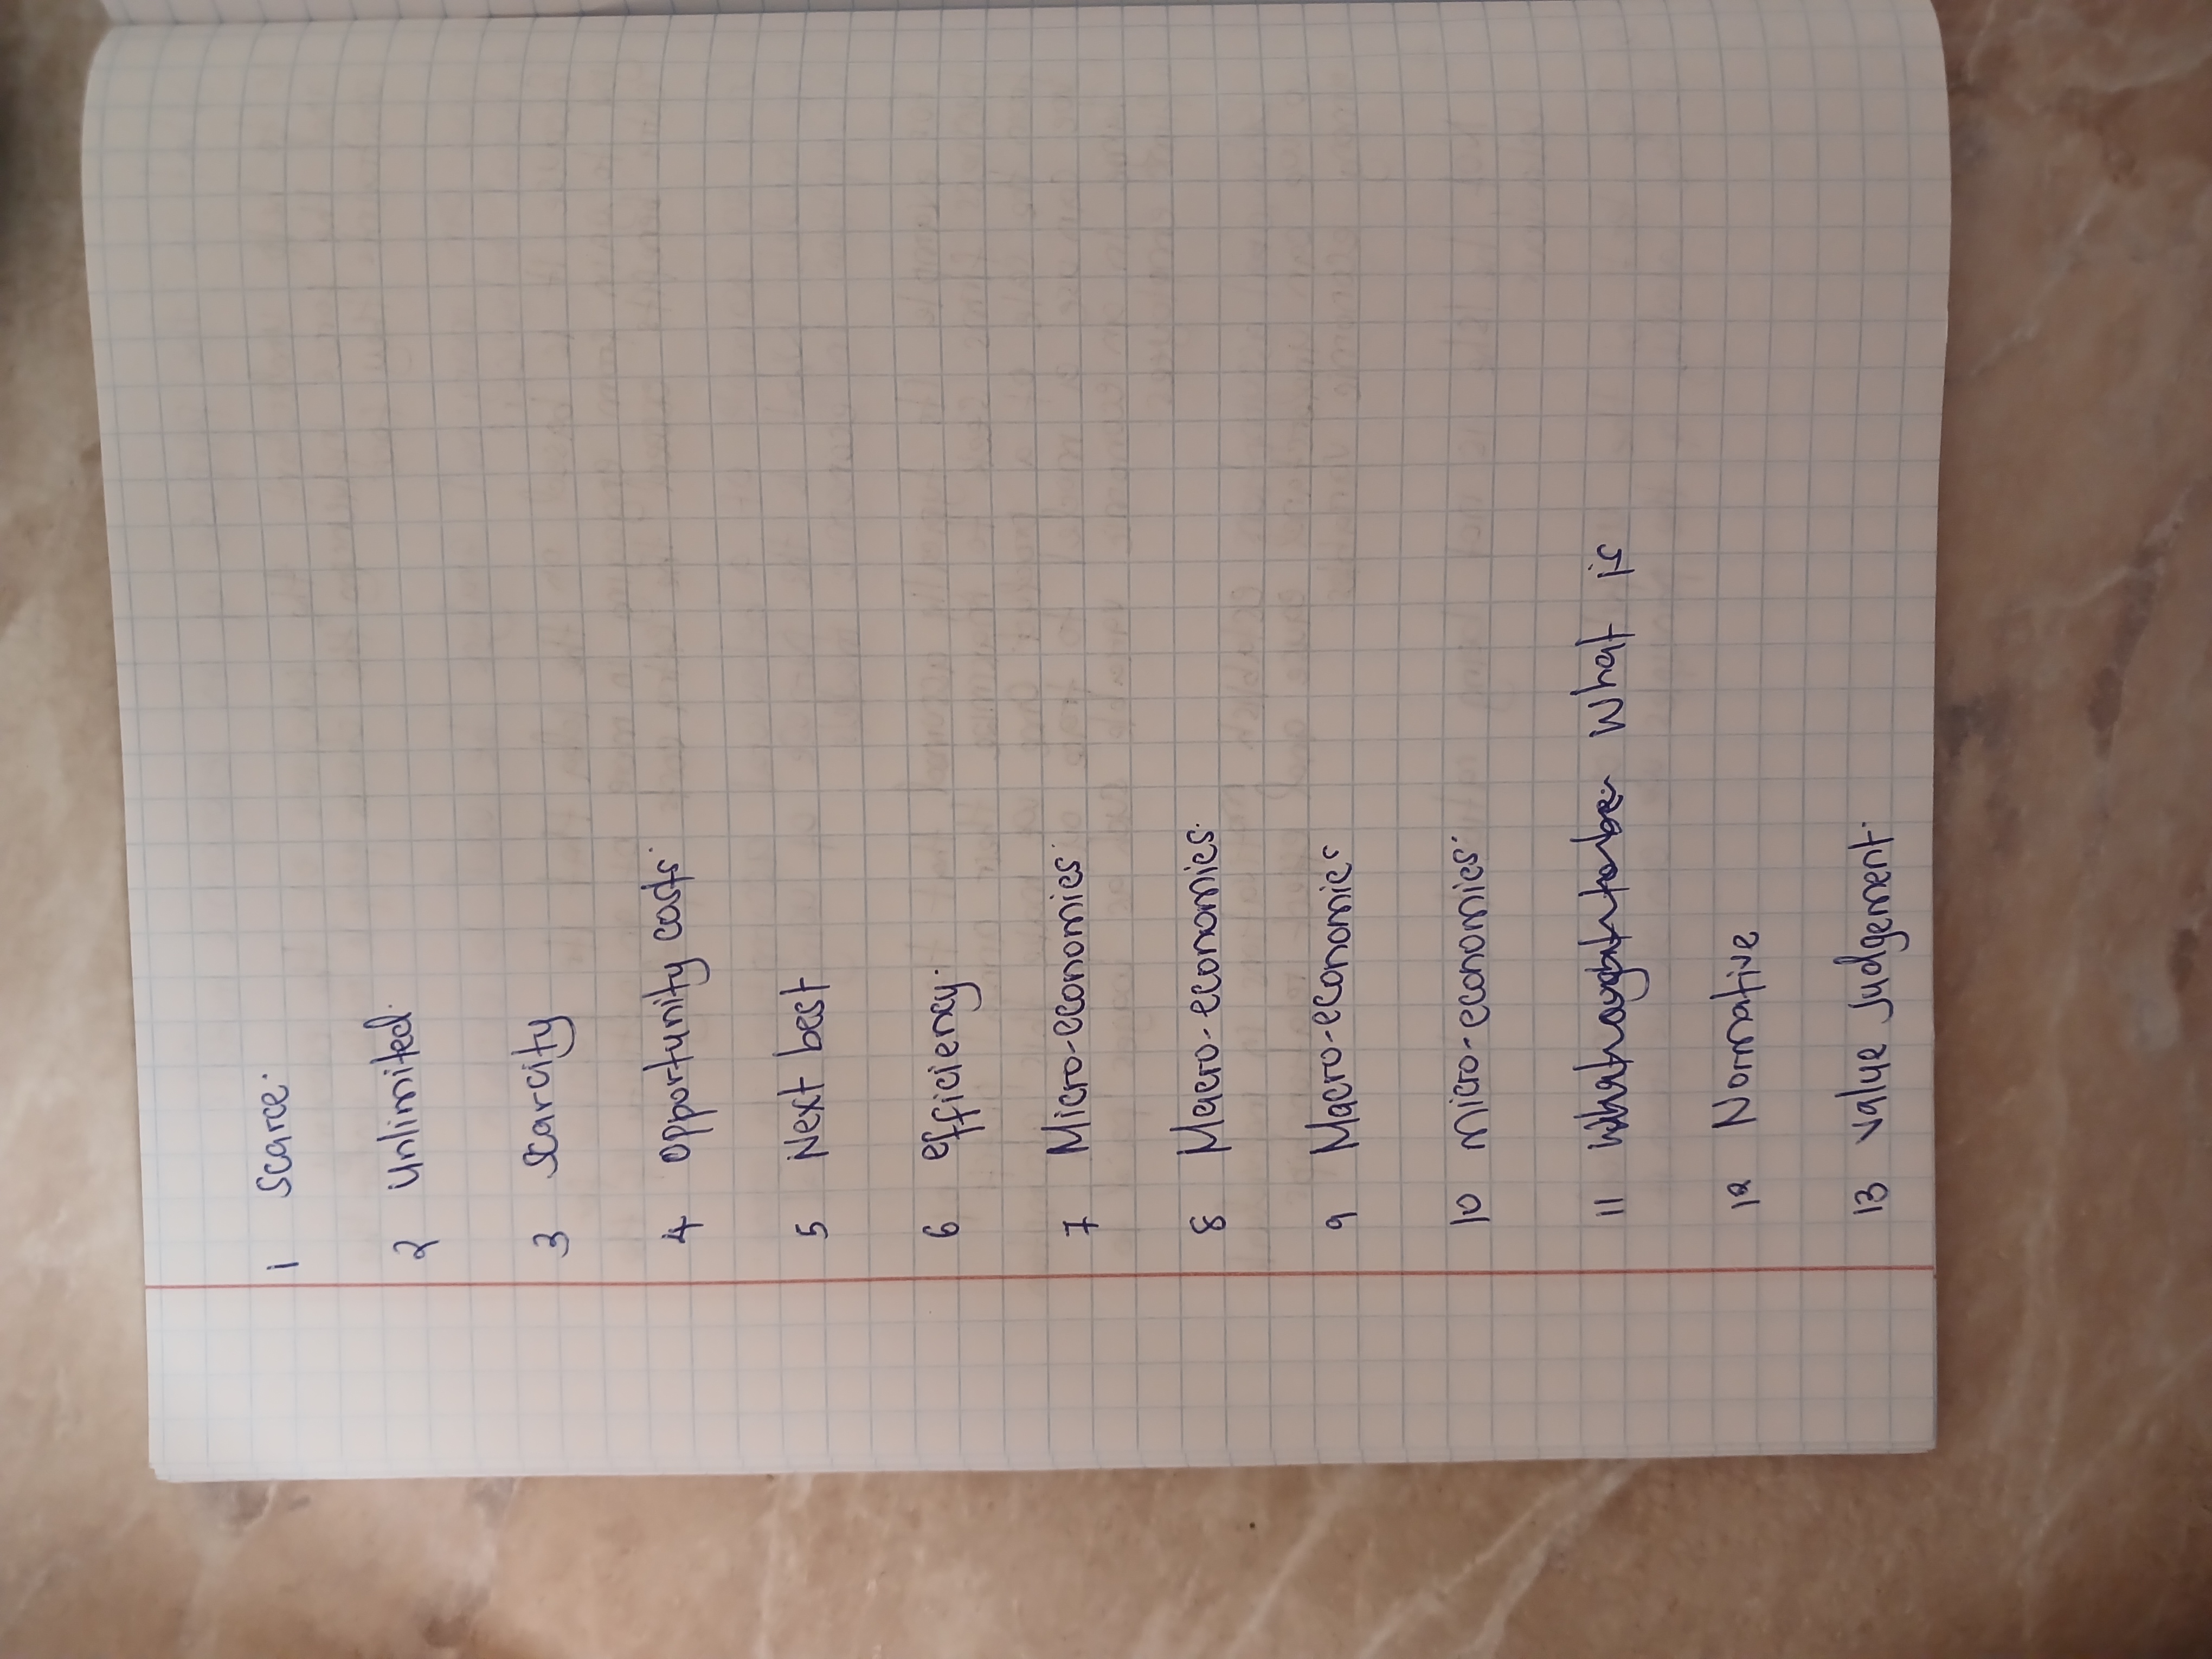 1 Scarce.
2 Unlimited.
3 Scarcity
4 Opportunity costs.
5 Next best
6 efficiency.
7 Micro-economics.
8 Macro-economics.
9 Macro-economics
10 Micro-economics.
11 What ought to be. What is
12 Normative
13 Value judgement.